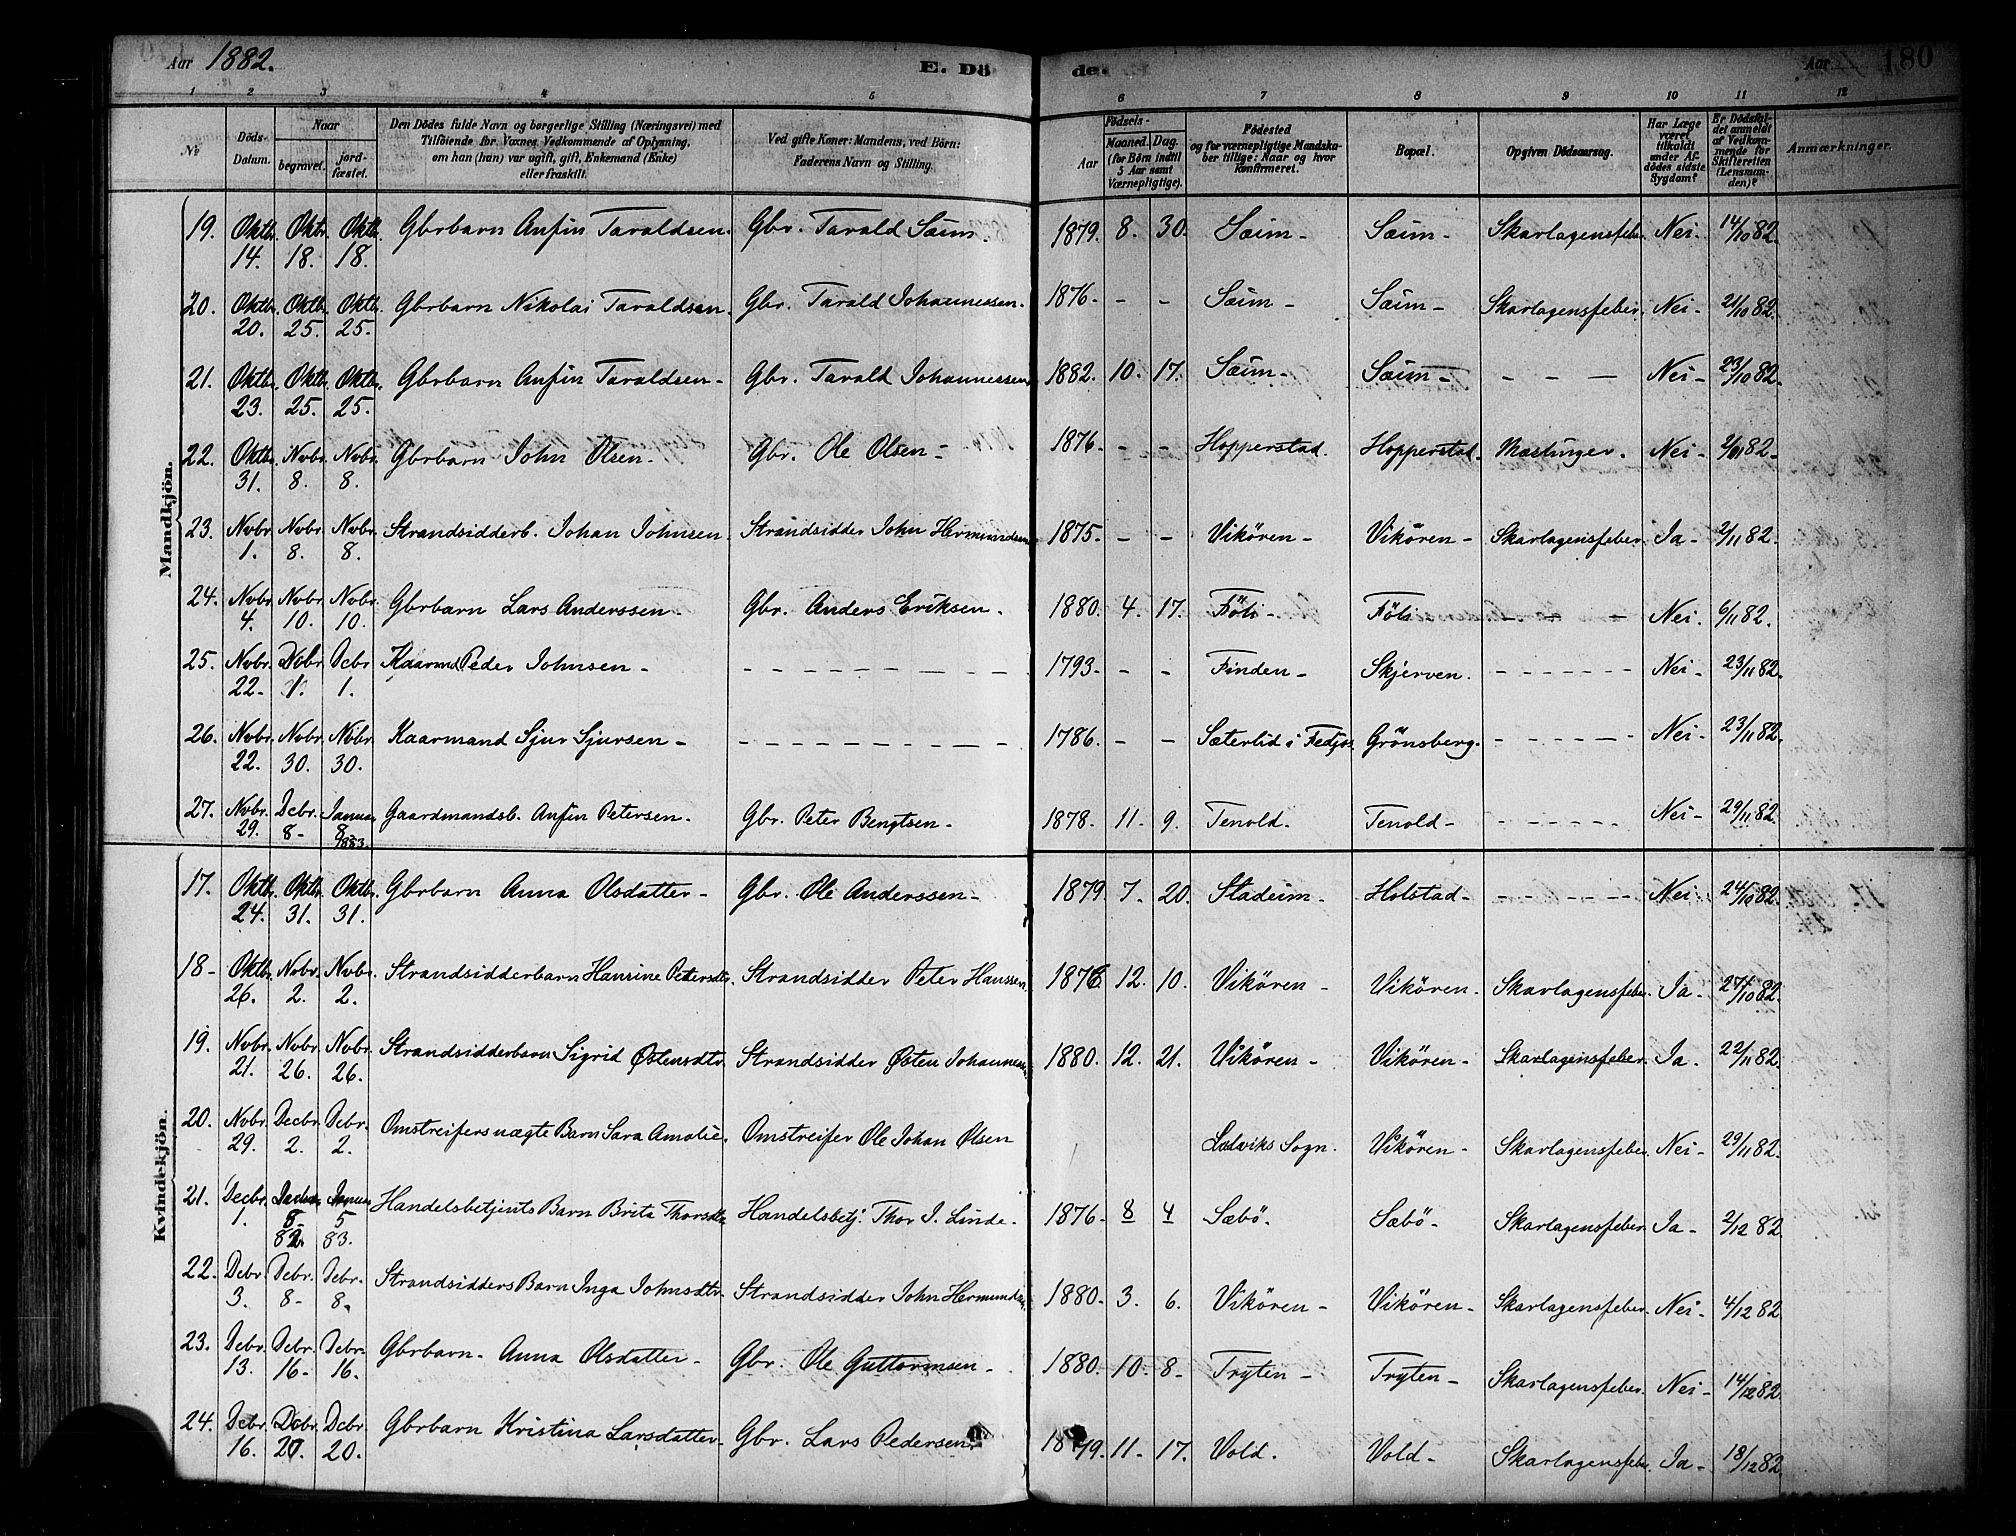 Aar 1882. E. Dö de. Aar 180
1 2 3 4 5 6 7 8 9 10 11 12
No
Döds-Datum.
Naar
begravet.
jord-fæstet.
Den Dödes fulde Navn og borgerlige Stilling (Næringsvei) med
Tilföiende for Voxnes Vedkommende af Oplysning,
om han (hun) var ugift, gift, Enkemand (Enke)
eller fraskilt.
Ved gifte Koner: Mandens, ved Börn:
Faderens Navn og Stilling.
Födsels-
Aar
Maaned. Dag.
(for Börn indtil
5 Aar samt
Værnepligtige).
Födested
og for værnepligtige Mandska-
ber tillige: Naar og hvor
konfirmeret.
Bopæl.
Opgiven Dödsaarsag.
Har Læge
været
tilkaldt
under Af-
dödes sidste
Sygdom?
Er Dödsfal-
det anmeldt
af Vedkom-
mende for
Skifteretten
(Lensman-
den)?
Anmærkninger.
Mandkjön.
19. Oktb. 14. Oktb. 18. Oktb. 18. Gbrbarn Anfin Taraldsen. Gbr. Tarald Sæim. 1879. 8. 30. Sæim - Sæim - Skarlagensfeber. Nei. 14/10 82.
20. Oktb. 20. Oktb. 25. Oktb. 25. Gbrbarn Nikolai Taraldsen. Gbr. Tarald Johannessen. 1876 - - - Sæim - Sæim - Skarlagensfeber. Nei - 21/10 82.
21. Oktb. 23. Oktb. 25. Oktb. 25. Gbrbarn Anfin Taraldsen - Gbr. Tarald Johannessen 1882. 10. 17. Sæim - Sæim - - - - Nei - 23/10 82.
22. Oktb. 31. Nvbr. 8. Nvbr. 8. Gbrbarn John Olsen - Gbr. Ole Olsen - 1876 - - - Hopperstad. Hopperstad. Mæslinger. Nei - 2/11 82 -
23. Nvbr. 1. Nvbr. 8. Nvbr. 8. Strandsidderb. Johan Johnsen. Strandsidder John Hermundsen 1875 - - - Vikören - Vikören - Skarlagensfeber Ja - 2/11 82.
24. Nvbr. 4. Nvbr. 10. Nvbr. 10. Gbrbarn Lars Anderssen. Gbr. Anders Eriksen. 1880. 4. 17. Föli - Föli - - - Nei. 6/11 82.
25. Nvbr. 22. 1. Dcbr 1. Kaarmd Peder Johnsen - - - - 1793 - - - Finden - Skjerven. - - - Nei - 23/11 82.
26. Nvbr. 22. Nvbr. 30. Nvbr. 30. Kaarmand Sjur Sjursen - - - - 1786. - - Sæterlid i Fedjos Grönsberg. - - - Nei - 23/11 82.
27. Nvbr. 29. Dcbr. 8 - Januar 8 1883. Gaardmandsb. Anfin Petersen. Gbr. Peter Bengtsen - 1878. 11. 9. Tenold. Tenold - - - - Nei - 29/11 82.
Kvindekjön.
17. Oktb. 24. Oktb. 31. Oktb. 31. Gbrbarn Anna Olsdatter - Gbr. Ole Anderssen - 1879 7. 20. Stadeim - Holstad - - - - Nei - 24/10 82.
18 - Oktb. 26. Nvbr. 2. Nvbr. 2. Strandsidderbarn Hansine Petersdtr. Strandsidder Peter Hanssen. 12. 10. Vikören - Vikören. Skarlagensfeber. Ja - 27/10 82.
19. Nvbr. 21. Nvbr. 26. Nvbr. 26. Strandsidderbarn Sigrid Østensdtr. Strandsidder Østen Johannessen 1880. 12. 21. Vikören - Vikören - Skarlagensfeber. Ja - 22/11 82.
20. Nvbr. 29. Decbr. 2. Dcbr. 2. Omstreifers uægte Barn Sara Amalie. Omstreifer Ole Johan Olsen Ladviks Sogn. Vikören - Skarlagensfeber. Nei - 29/11 82.
21. Decbr. 1. 8 82. Januar 5 83. Handelsbetjents Barn Brita Thorsdtr. Handelsbetj. Thor J. Linde - 1876 - 8 4 Sæbö. Sæbö - Skarlagensfeber Ja - 2/12 82.
22. Dcbr 3. Dcbr. 8 - Dcbr. 8. Strandsidders Barn Inga Johnsdtr. Strandsidder John Hermundsen 1880. 3. 6. Vikören - Vikören - Skarlagensfeber. Nei - 4/12 82.
23. Dcbr. 13. Dcbr. 16 - Dcbr. 16. Gbrbarn - Anna Olsdatter - Gbr. Ole Guttormsen - 1880. 10. 8 - Tryten - Tryten - Skarlagensfeber. Nei - 14/12 82.
24. Dcbr. 16. Dcbr. 20. Dcbr. 20. Gbrbarn Kristina Larsdatter - Gbr. Lars Pedersen 1879. 11. 17. Vold. Vold - Skarlagensfeber. Ja - 18/12 82.